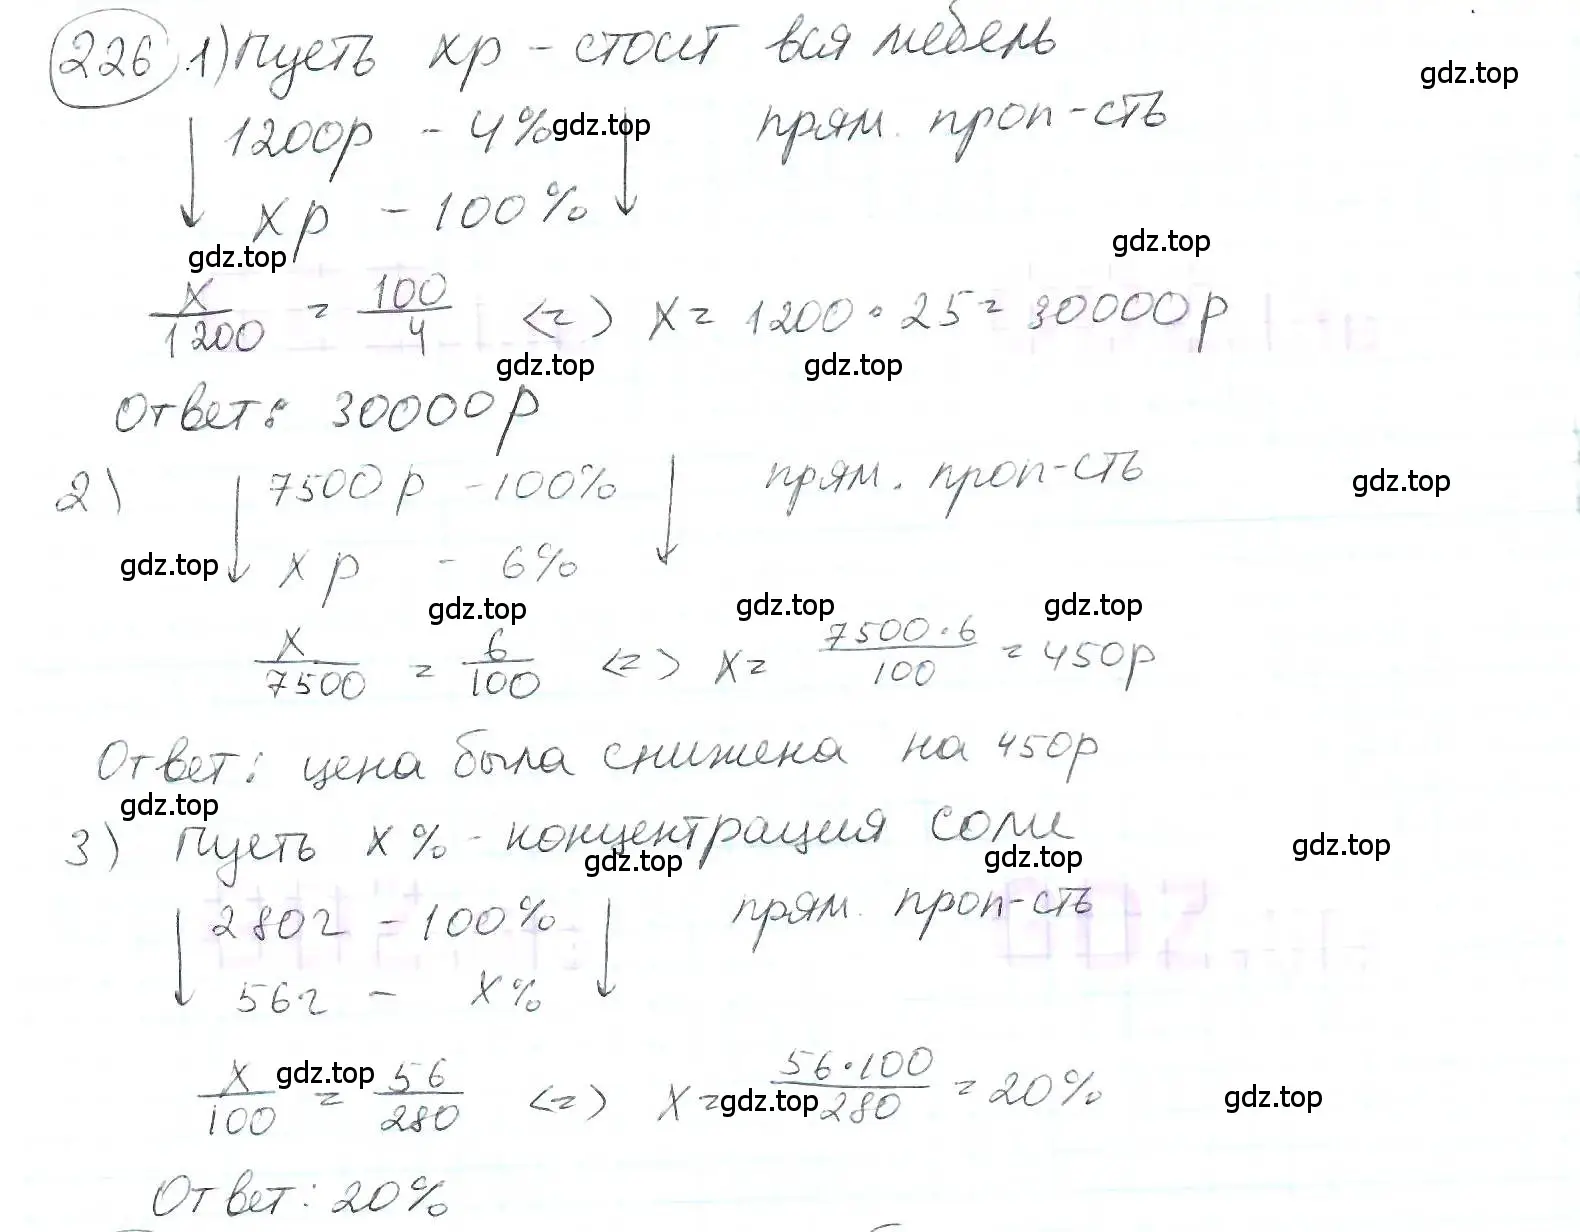 226 1) Пусть xр - стоит вся мебель
gdz.top
1200р - 4% прям. проп-сть
gdz.top
xр - 100%
gdz.top
gdz.top
x/1200 = 100/4 <=> x = 1200 · 25 = 30000р
gdz.top gdz.top
Ответ: 30000р
2) 7500р - 100% прям. проп-сть
gdz.top
xр - 6%
gdz.top
gdz.top gdz.top gdz.top
x/7500 = 6/100 <=> x = 7500·6/100 = 450р
Ответ: цена была снижена на 450р
gdz.top
3) Пусть x% - концентрация соли
gdz.top gdz.top gdz.top
280г - 100% прям. проп-сть
56г - x%
x/100 = 56/280 <=> x = 56·100/280 = 20%
gdz.top gdz.top gdz.top
Ответ: 20%